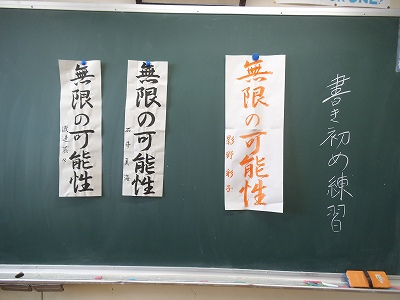 書き初め練習
無限の可能性
影野彩子
無限の可能性
石井美海
無限の可能性